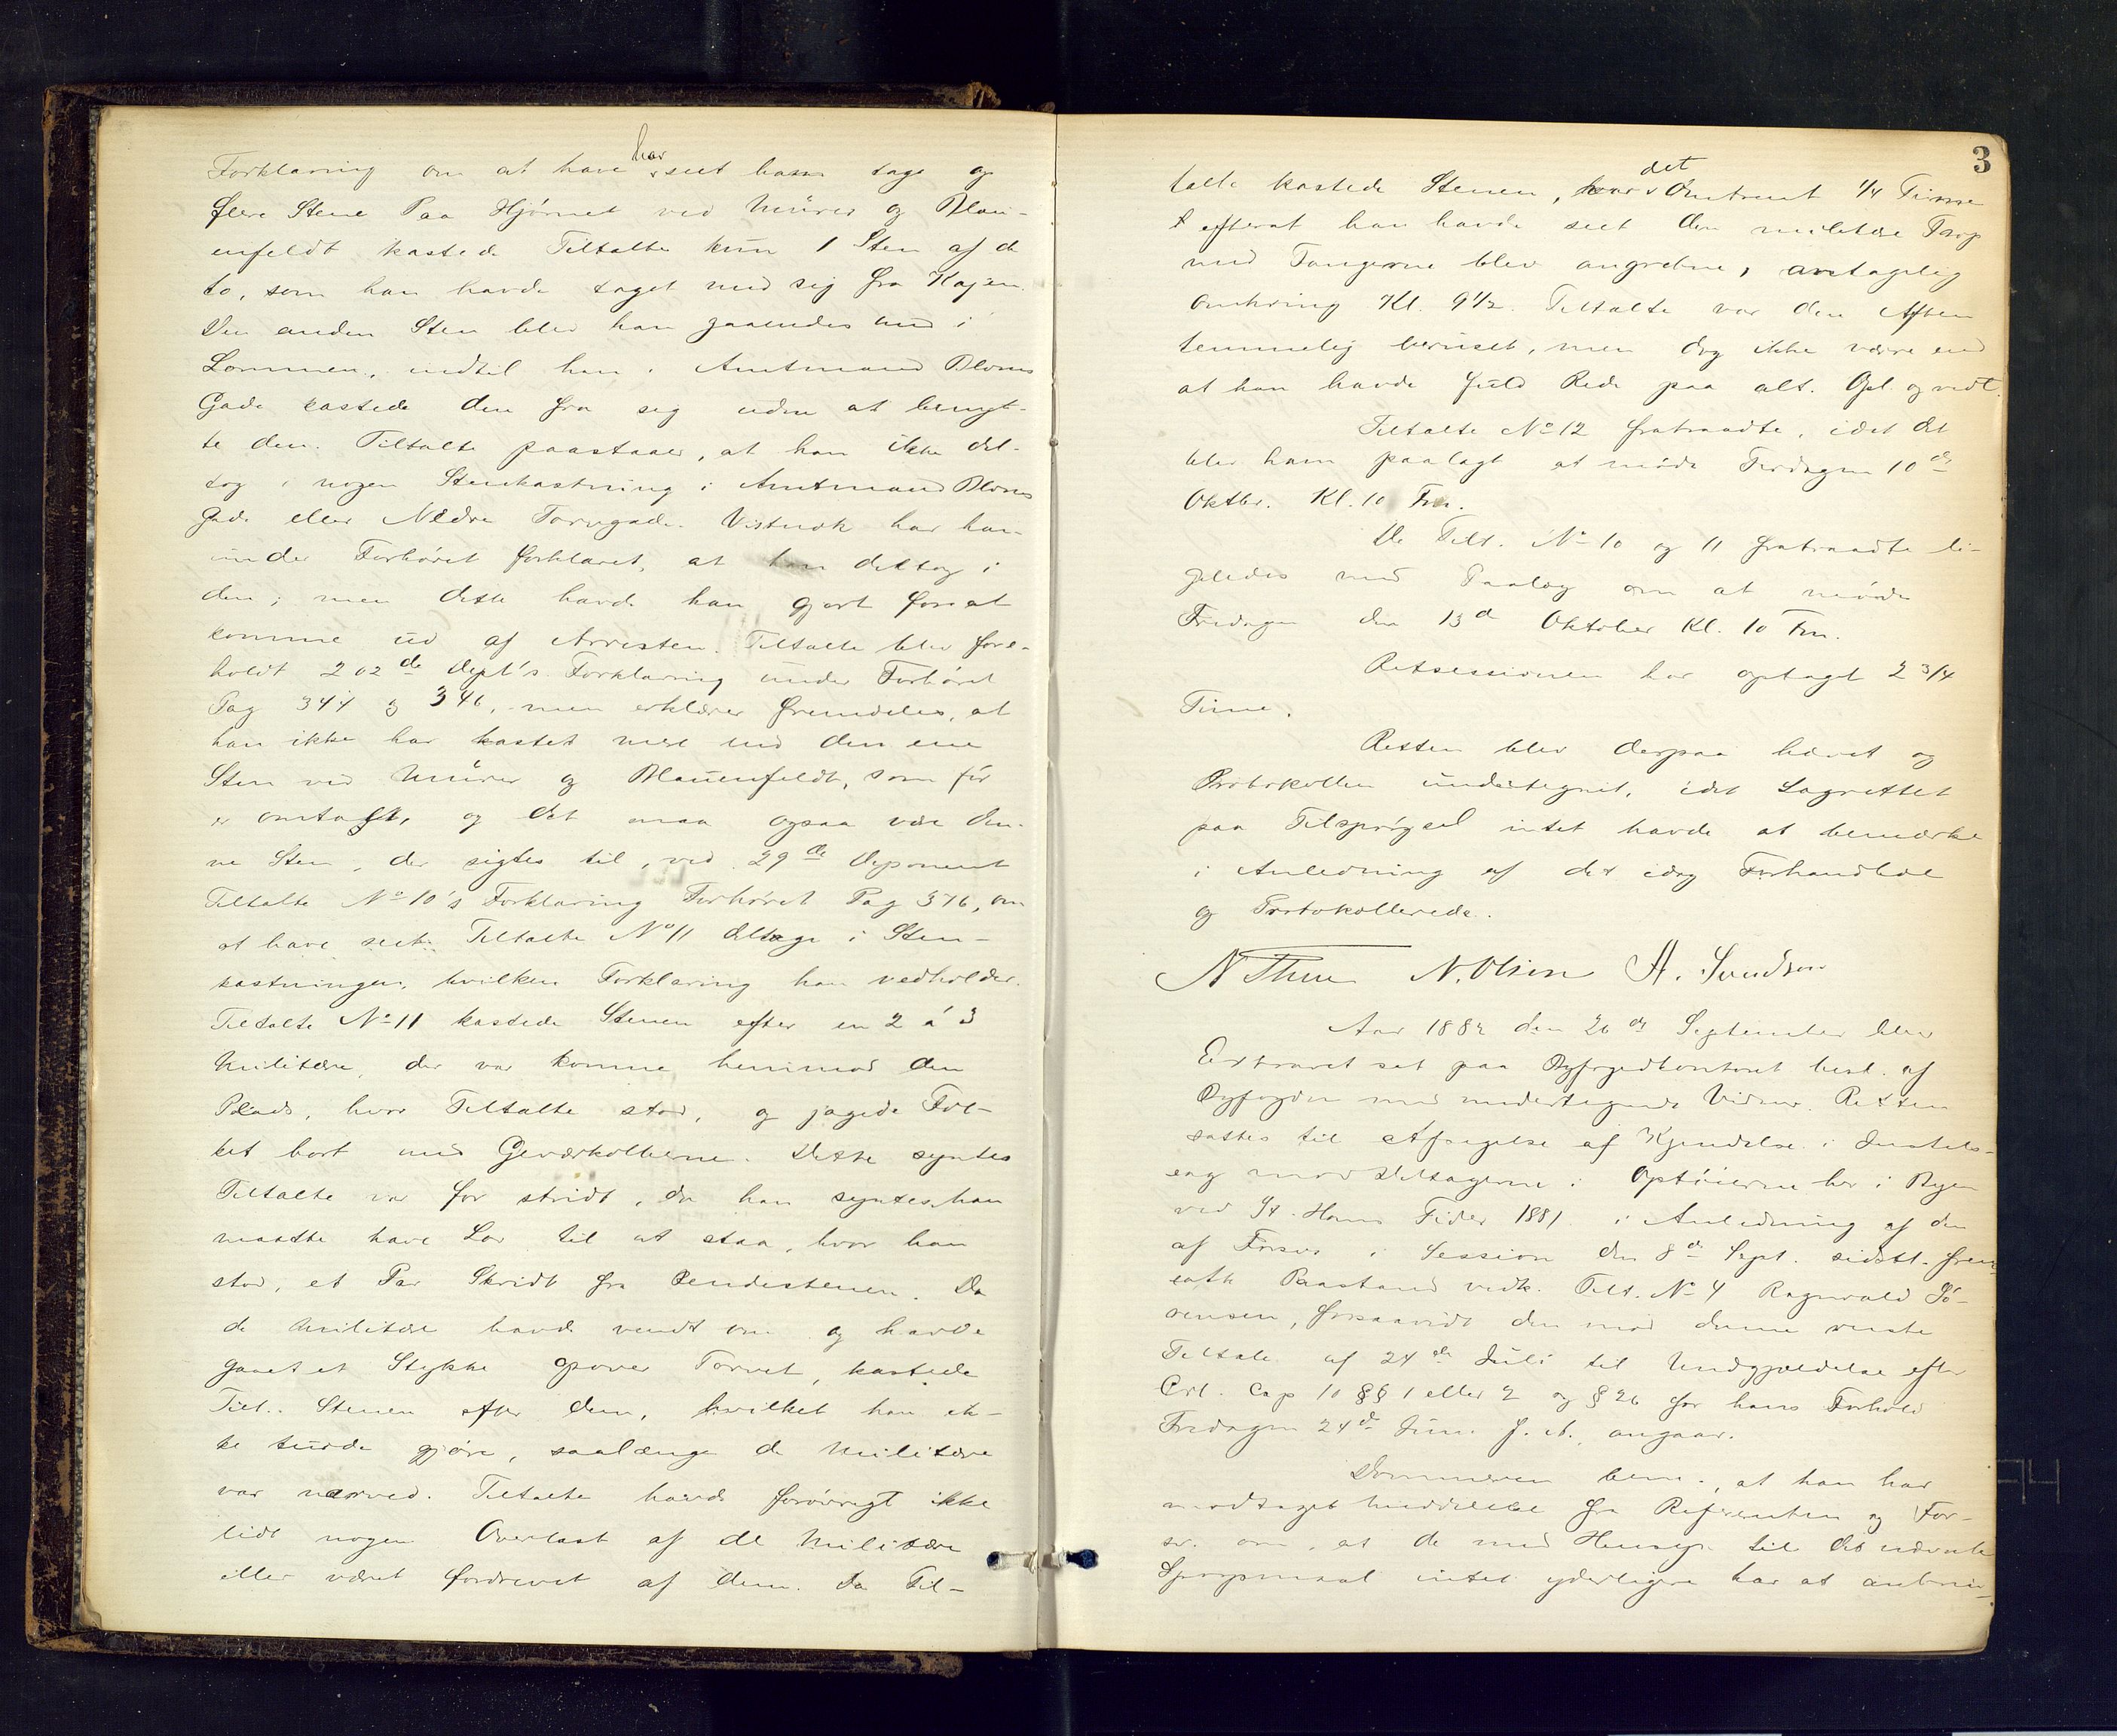 Forklaring om at have seet ham tage op
har
flere Stene Paa Hjørnet ved Mürer og Blau-
enfeldt kastede Tiltalte kun 1 Sten af de
to, som han havde taget med sig fra Kajen.
Den anden Sten blev han gaaendes med i
Lommen, indtil han i Amtmand Bloms
Gade kastede den fra sig uden at benyt-
te den. Tiltalte paastaaer, at han ikke del-
tog i nogen Stenkastning i Amtmand Bloms
Gade eller Nedre Torvgade. Vistnok har han
under Forhøret forklaret, at han deltog i
den; men dette havde han gjort for at
komme ud af Arresten. Tiltalte blev fore-
holdt 202de Dept's Forklaring under Forhøret
Pag 344 og 346, men erklærer fremdeles, at
han ikke har kastet mere end den ene
Sten ved Mürer og Blauenfeldt, som før
er omtalt, og det maa ogsaa være den-
ne Sten, der sigtes til, ved 29de Deponent
Tiltalte No 10's Forklaring Forhøret Pag 376, om
at have seet Tiltalte No 11 deltage i Sten-
kastningen, hvilken Forklaring han vedholder.
Tiltalte No 11 kastede Stenen efter en 2 á 3
Militære, der var komne henimod den
Plads, hvor Tiltalte stod, og jagede Fol-
ket bort med Geværkolberne. Dette syntes
Tiltalte var for stridt, da han syntes, han
maatte have Lov til at staa, hvor han
stod, et Par Skridt fra Rendestenen. Da
de Militære havde vendt om og havde
gaaet et Stykke opover Torvet, kastede
Tilt. Stenen efter dem, hvilket han ik-
ke turde gjøre, saalænge de Militære
var nærved. Tiltalte havde forøvrigt ikke
lidt nogen Overlast af de Militære
eller været fordrevet af dem. Da Til-
3
talte kastede Stenen, var Omtrent 1/4 Time
det
efterat han havde seet den militære Trop
med Fangerne blev angreben, antagelig
omkring Kl. 9 1/2. Tiltalte var den Aften
temmelig beruset, men dog ikke værre end
at han havde fuld Rede paa alt. Opl. og vedt.
Tiltalte No 12 fratraadte, idet det
blev ham paalagt at møde Tirsdagen 10de
Oktbr. Kl. 10 Fm.
De Tilt. No 10 og 11 fratraadte li-
geledes med Paalæg om at møde
Fredagen den 13de Oktober Kl. 10 Fm.
Retsessionen har optaget 2 3/4
Time.
Retten blev derpaa hævet og
Protokollen undertegnet, idet Lagrettet
paa Tilspørgsel intet havde at bemærke
i Anledning af det idag Forhandlede
og Protokollerede.
N Thue N. Olsen A. Svendsen
Aar 1882 den 26de September blev
Extraret sat paa Byfogedkontoret best. af
Byfogden med undertegnede Vidner. Retten
sattes til Afsigelse af Kjendelse i Justits-
sag mod Deltagerne i Optøierne her i Byen
ved St. Hans Tider 1881 i Anledning af den
af Forsvr. i Session den 8de Sept. sidstl. frem-
satte Paastand vedk. Tilt. No 4 Ragnvald Sö-
rensen, forsaavidt den mod denne rejste
Tiltale af 24de Juli til Undgjældelse efter
Crl. Cap 10 §§ 1 eller 2 og § 26 for hans Forhold
Fredagen 24de Juni f. A., angaar.
Dommeren bem., at han har
modtaget Meddelelse fra Referenten og For-
sv. om, at de med Hensyn til det nævnte
Spørgsmaal intet yderligere har at anbrin-